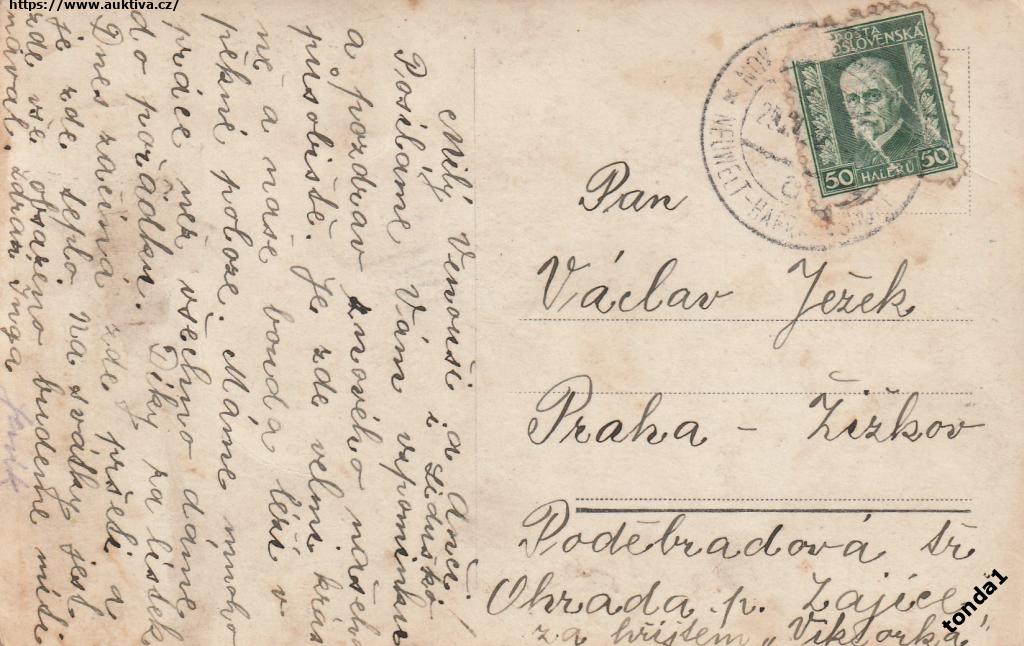 https://www.auktiva.cz/
Milý Venouši a Anči!
Posíláme Vám i Liduško vzpomínku
a pozdrav z nového našeho
působiště. Je zde velmi krás
ně a naše bouda leží v
pěkné poloze. Máme mnoho
práce než všechno dáme
do pořádku. Díky za lístek
Dnes začíná zde pršeti a
je zde teplo. Na svátky jest
zde vše obsazeno budeme míti
nával. Zdraví Inga
POSTA
OSLOVENSKÁ
50 HALÉŘŮ 50
NOV
NEUWELT-HARR
Pan
Václav Ježek
Praha - Žižkov
Poděbradová tř
Ohrada p. Zajíce
za hřištem „Viktorka"
tonda1